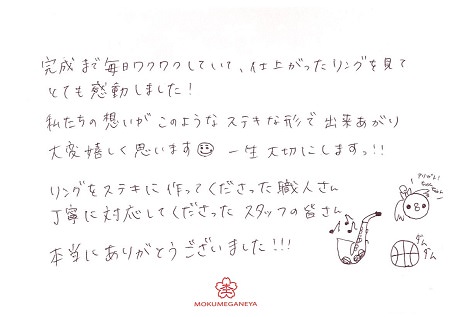 完成まで毎日ワクワクしていて、仕上がったリングを見て
とても感動しました！
私たちの想いがこのようなステキな形で出来あがり
大変嬉しく思います 一生大切にしますっ!!
リングをステキに作ってくださった職人さん
丁寧に対応してくださったスタッフの皆さん
本当にありがとうございました!!!
ダム
ダム
MOKUMEGANEYA